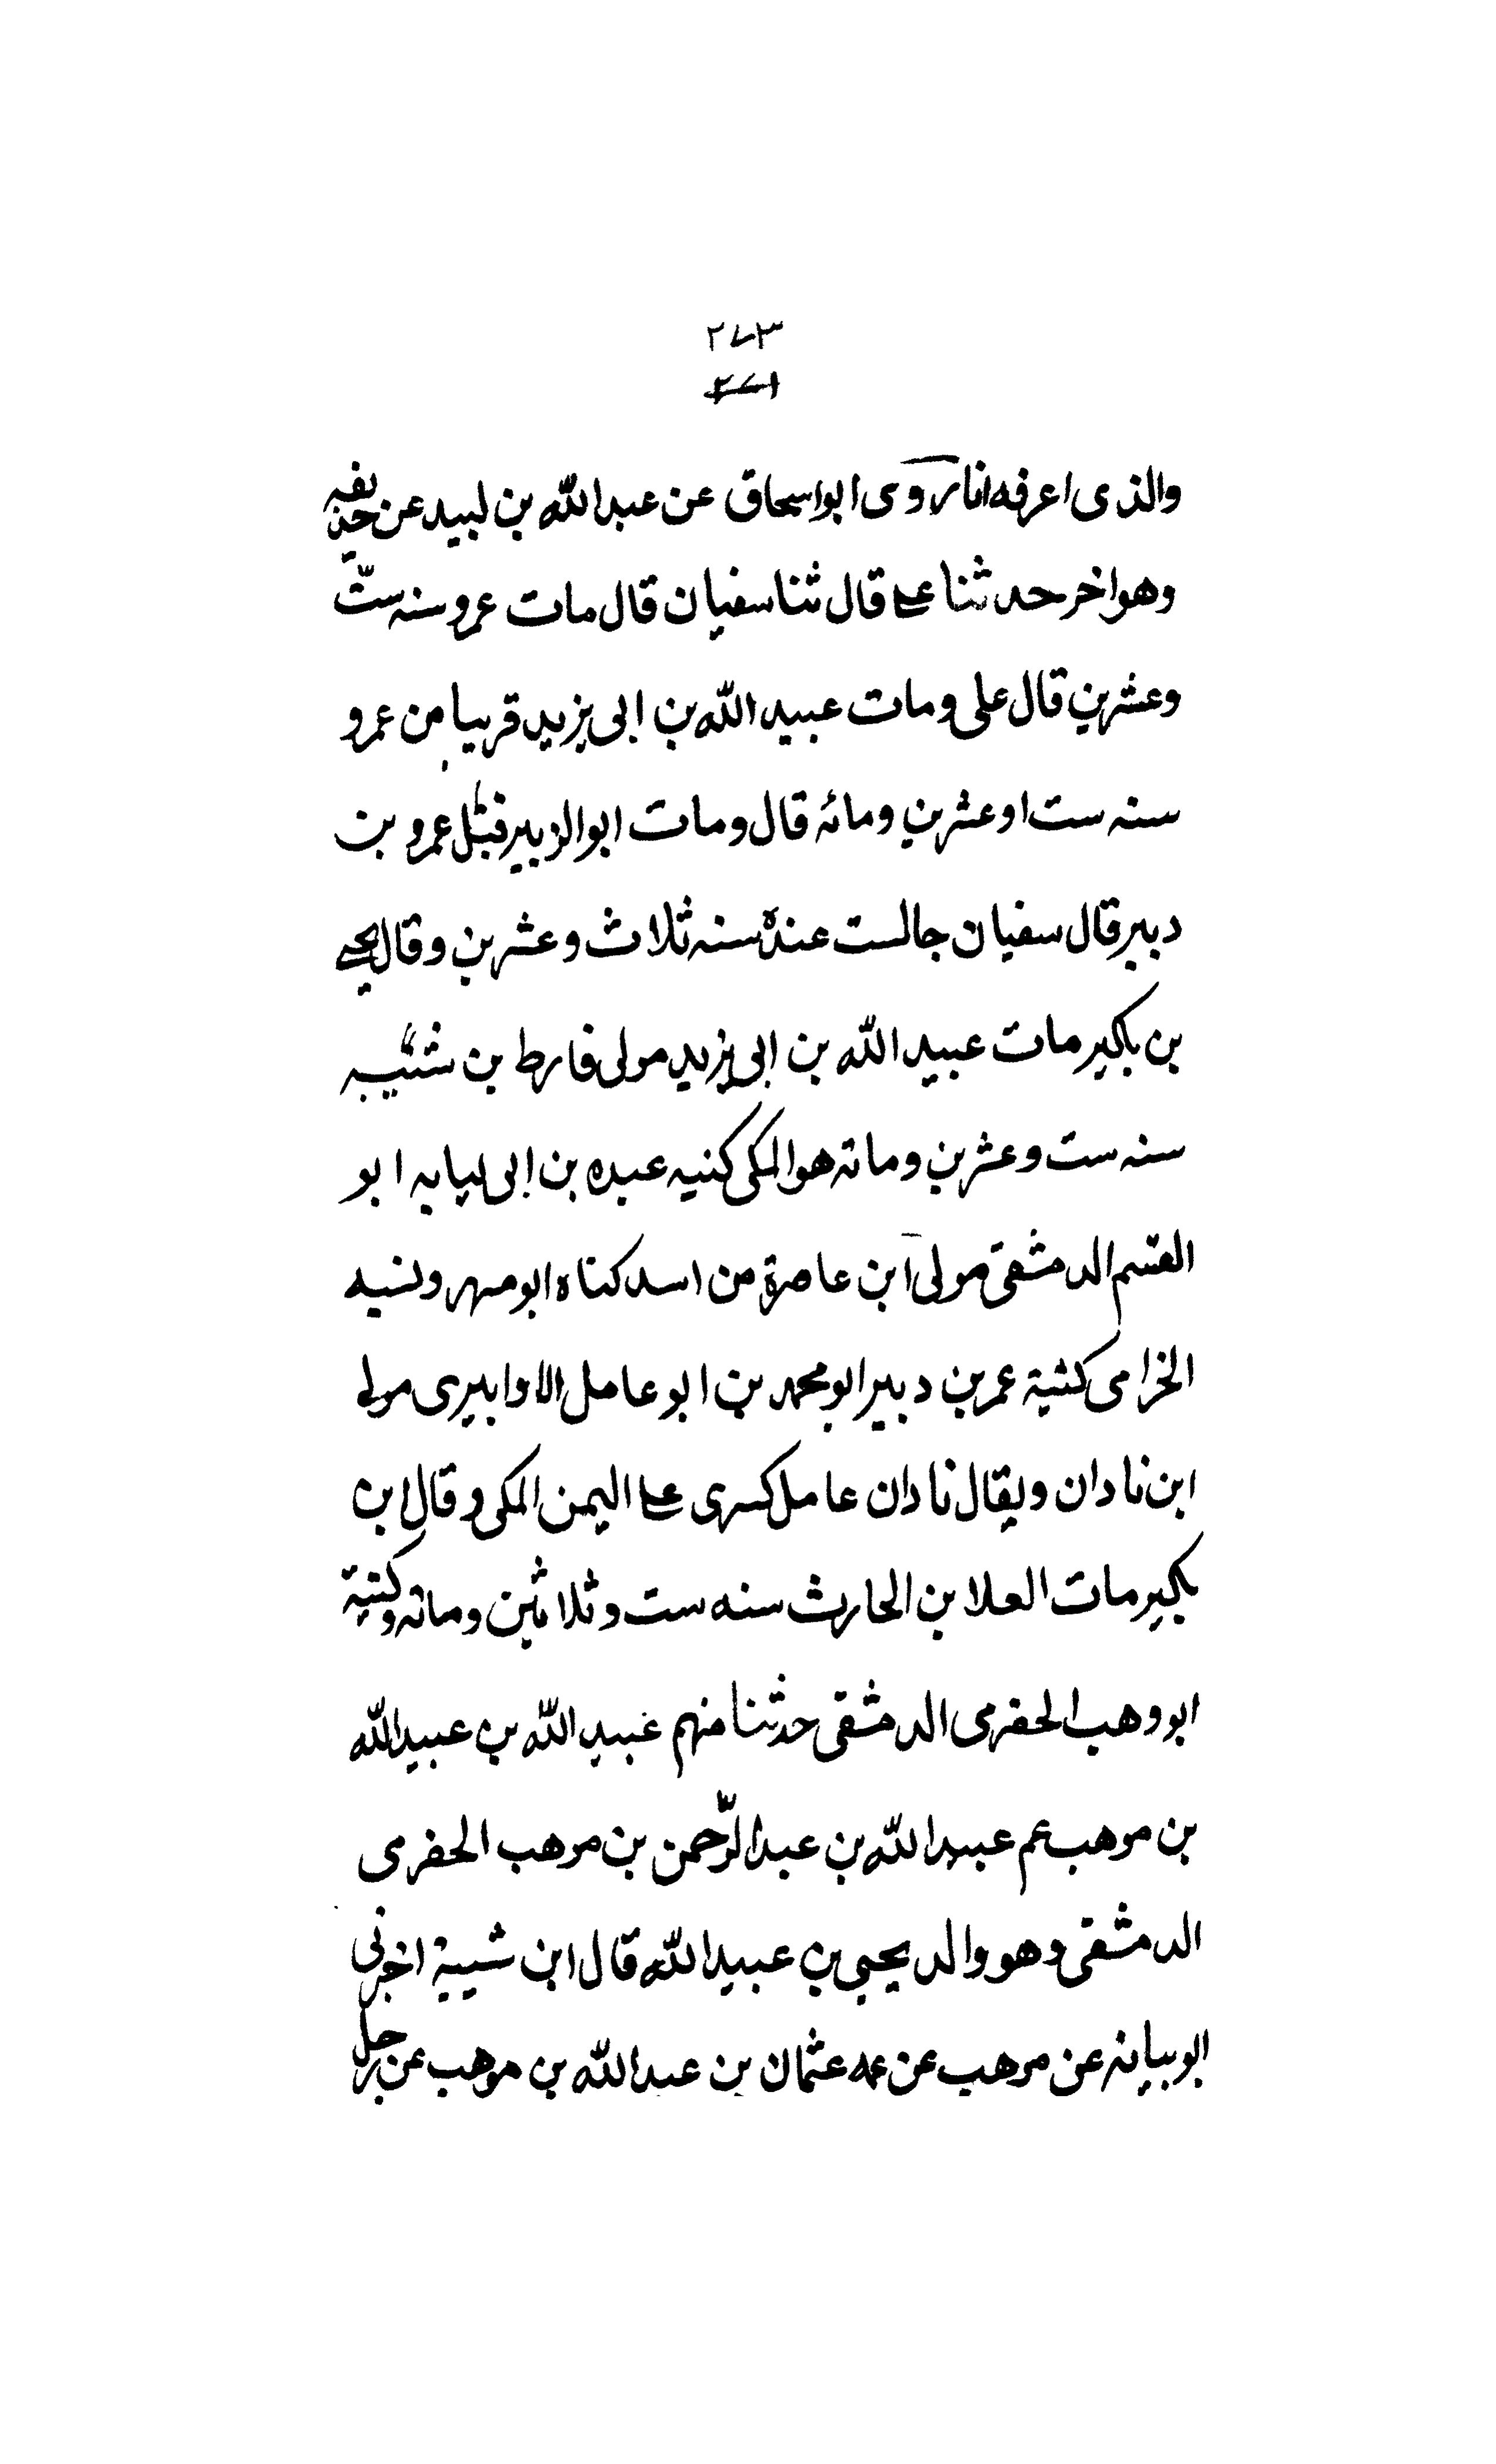 ٢٧٣
٢٧١
والذى اعرفه انا روى ابو اسحاق عن عبد الله بن لبيد عن حذيفه
وهو اخر حدثنا على قال ثنا سفيان قال مات عمرو سنه ستّ
وعشرين قال على ومات عبيد الله بن ابى يزيد قريبا من عمرو
سنه ست او عشرين ومائه قال ومات ابو الزبير قبل عمرو بن
دبير قال سفيان جالست عنده سنه ثلاث وعشرين وقال يحيے
بن بكير مات عبيد الله بن ابى يزيد مولى قارط بن شيبه
سنه ست وعشرين وماته هو المكى كنيه عبده بن ابى لبابه ابو
القسم الدمشقى مولى ابن عاصرة من اسد كناه ابو مسهر ونسبه
الخزامى كنية عمر بن دبير ابو محمد بن ابو عامل الاوابيرى مولى
ابن نادان ويقال نادان عامل كسرى على اليمن المكى وقال ابن
بكير مات العلا بن الحارث سنه ست وثلاثين وماته وكنية
ابو وهب الحفرمى الدمشقى حدثنا منهم عبيد الله بن عبيد الله
بن موهب عم عبيد الله بن عبد الرّحمن بن موهب الحفرمى
الدمشقى وهو والد يحيى بن عبيد الله قال ابن شيبة اخبرنى
ابو بيانه عن موهب عن عمه عثمان بن عبد الله بن موهب عن رجل